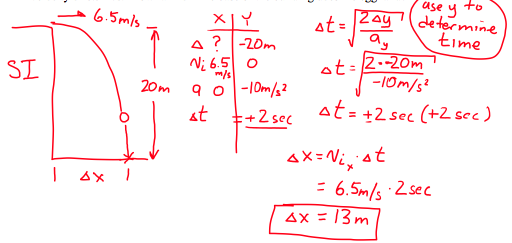 → 6.5m/s
SI
20m
Δx
X | Y
Δ ? | -20m
Vi 6.5 m/s | 0
a 0 | -10m/s²
Δt = +2 sec
Δt = √(2Δy / ay)
use y to
determine
time
Δt = √(2·-20m / -10m/s²)
Δt = ±2 sec (+2 sec)
Δx = Vix · Δt
= 6.5m/s · 2sec
Δx = 13m